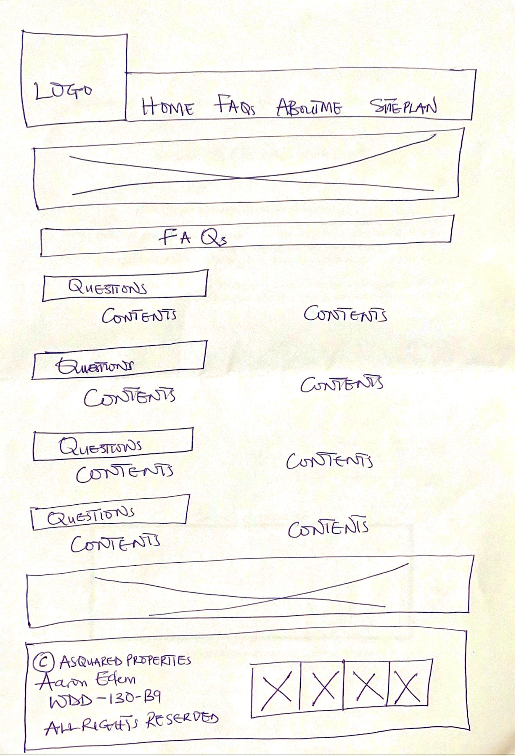 LOGO
HOME FAQs ABOUTME SITEPLAN
FAQs
QUESTIONS
CONTENTS CONTENTS
QUESTIONS
CONTENTS CONTENTS
QUESTIONS
CONTENTS CONTENTS
QUESTIONS
CONTENTS CONTENTS
© ASQUARED PROPERTIES
Aaron Edem
WDD-130-B9
ALL RIGHTS RESERVED